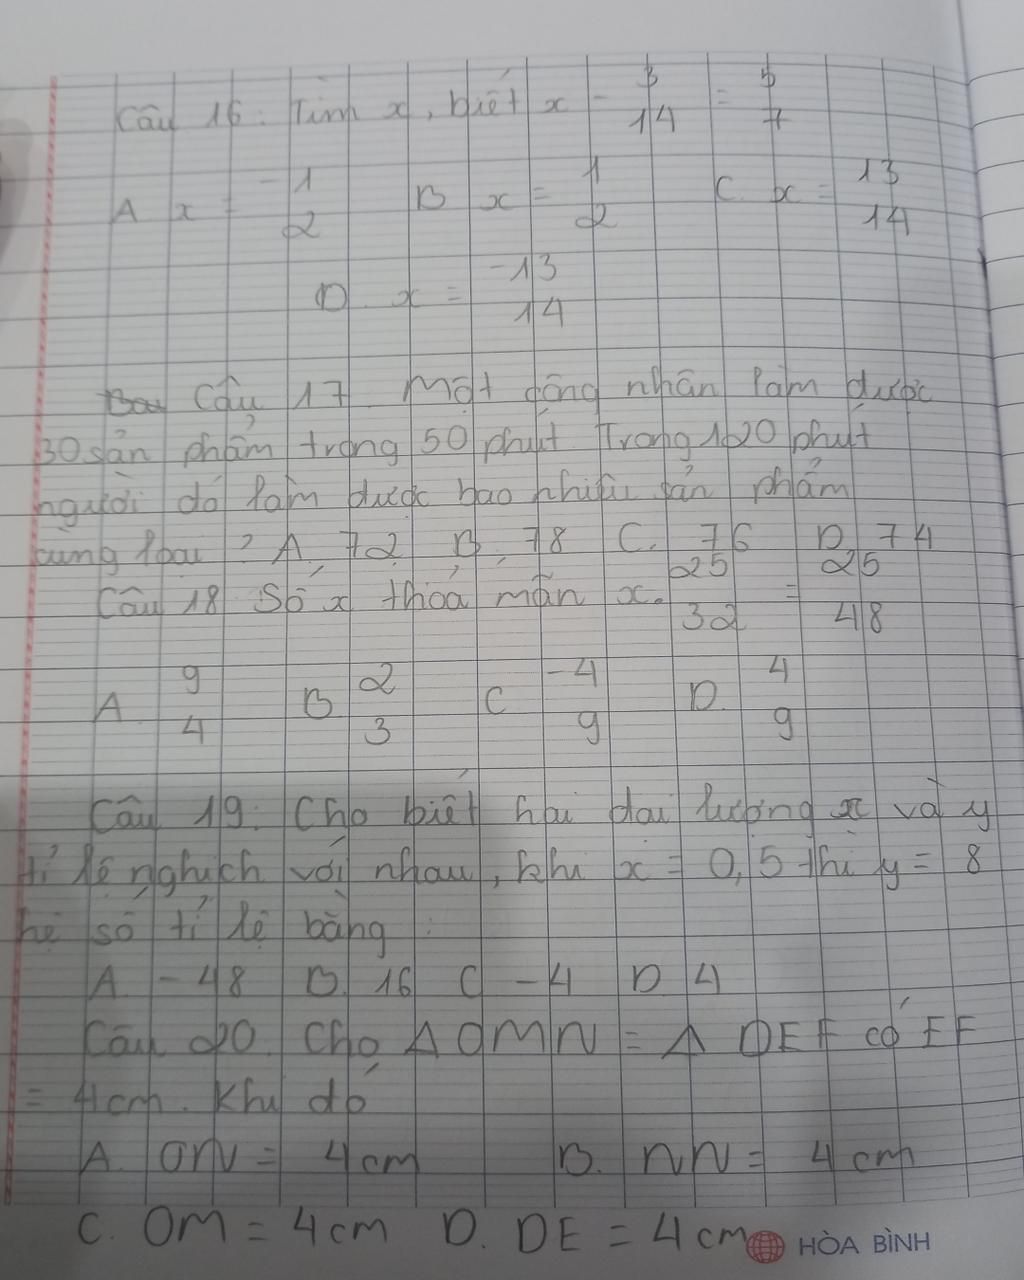 Câu 16: Tìm x, biết x - 3/14 = 5/7
A x = -1/2 B x = 1/2 C. x = 13/14
D. x = -13/14
Câu 17 Một công nhân làm được
30 sản phẩm trong 50 phút Trong 120 phút
người đó làm được bao nhiêu sản phẩm
cùng loại ? A. 72 B. 78 C. 76 D. 74
Câu 18 Số x thỏa mãn x. 25/32 = 25/48
A. 9/4 B. 2/3 C -4/9 D. 4/9
Câu 19: Cho biết hai đai lượng x và y
tỉ lệ nghịch với nhau, khi x = 0,5 thì y = 8
hệ số tỉ lệ bằng :
A. -48 B. 16 C -4 D 4
Câu 20. Cho ΔOMN = Δ DEF có EF
= 4cm. Khi đó
A. ON = 4cm B. NN = 4 cm
C. OM = 4cm D. DE = 4cm
HÒA BÌNH